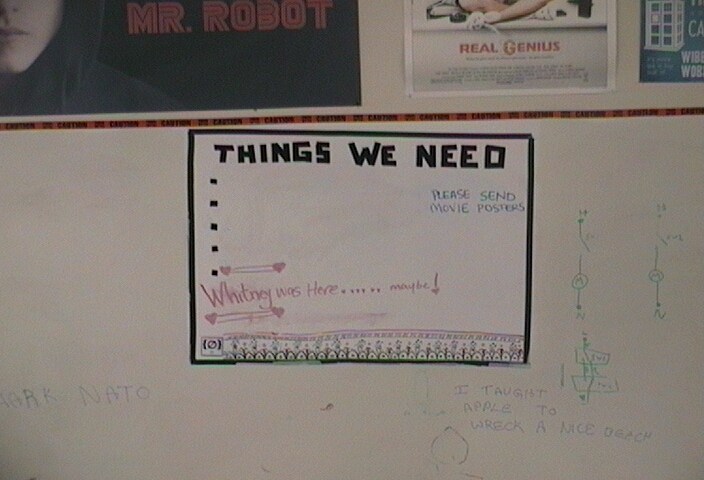 MR. ROBOT
REAL GENIUS
CAUTION CAUTION CAUTION CAUTION CAUTION CAUTION CAUTION CAUTION
THINGS WE NEED
PLEASE SEND
MOVIE POSTERS
Whitney was Here..... maybe!
(Ø)
NATO
I TAUGHT
APPLE TO
WRECK A NICE BEACH